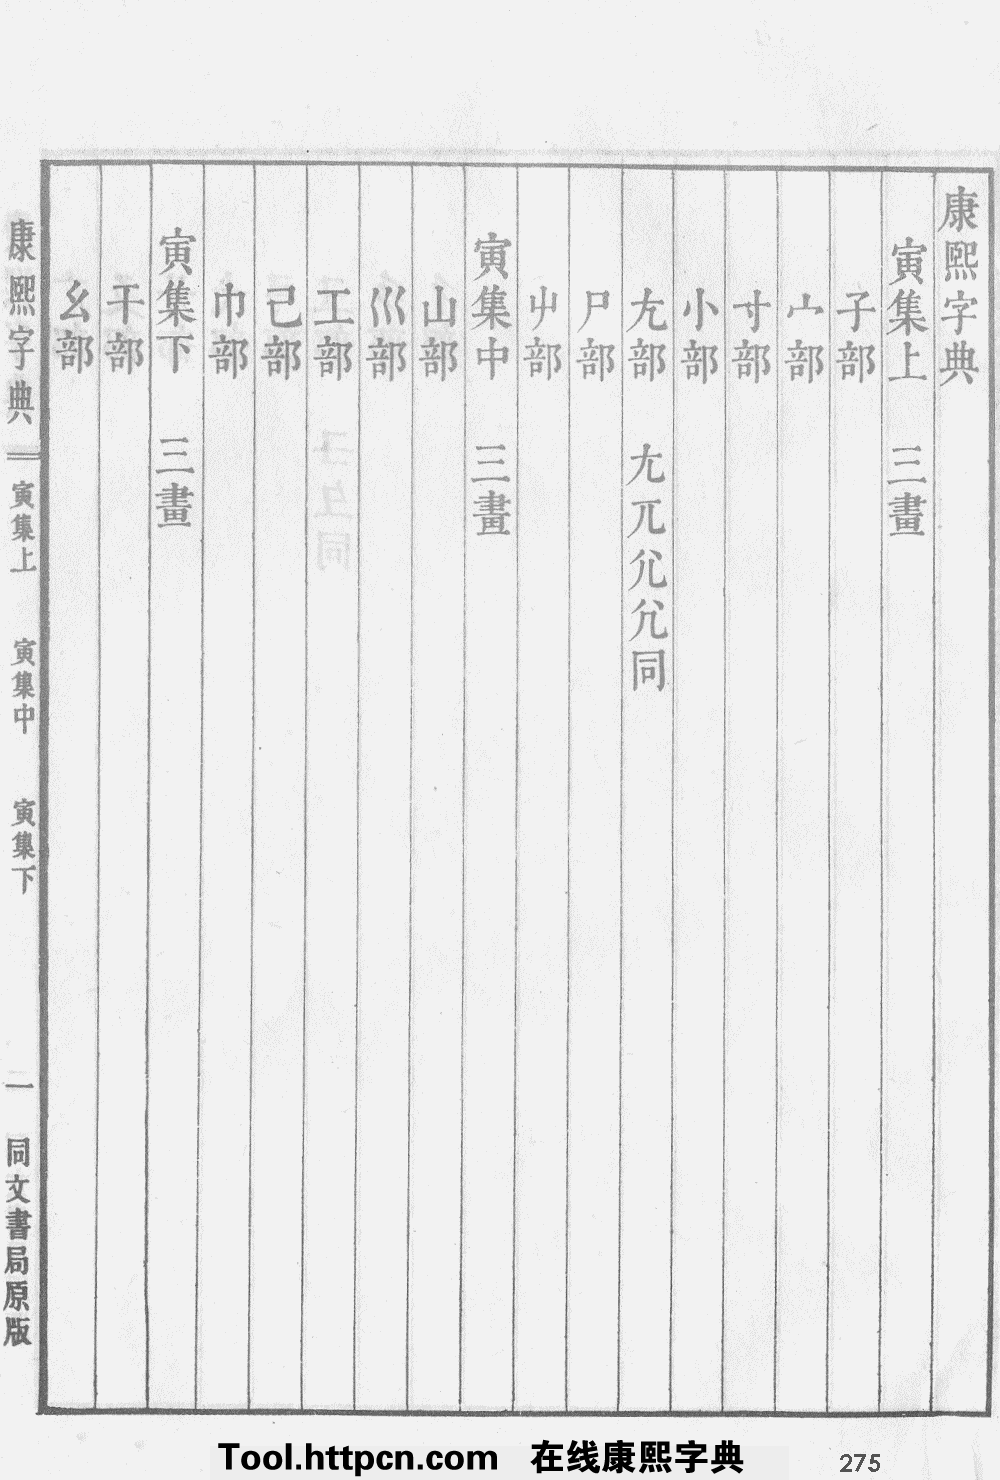 康熙字典
寅集上 三畫
子部
宀部
寸部
小部
尢部 尢兀尣同
尸部
屮部
寅集中 三畫
山部
巛部
工部
己部
巾部
寅集下 三畫
干部
幺部
康熙字典 寅集上 寅集中 寅集下 一 同文書局原版
Tool.httpcn.com 在线康熙字典 275